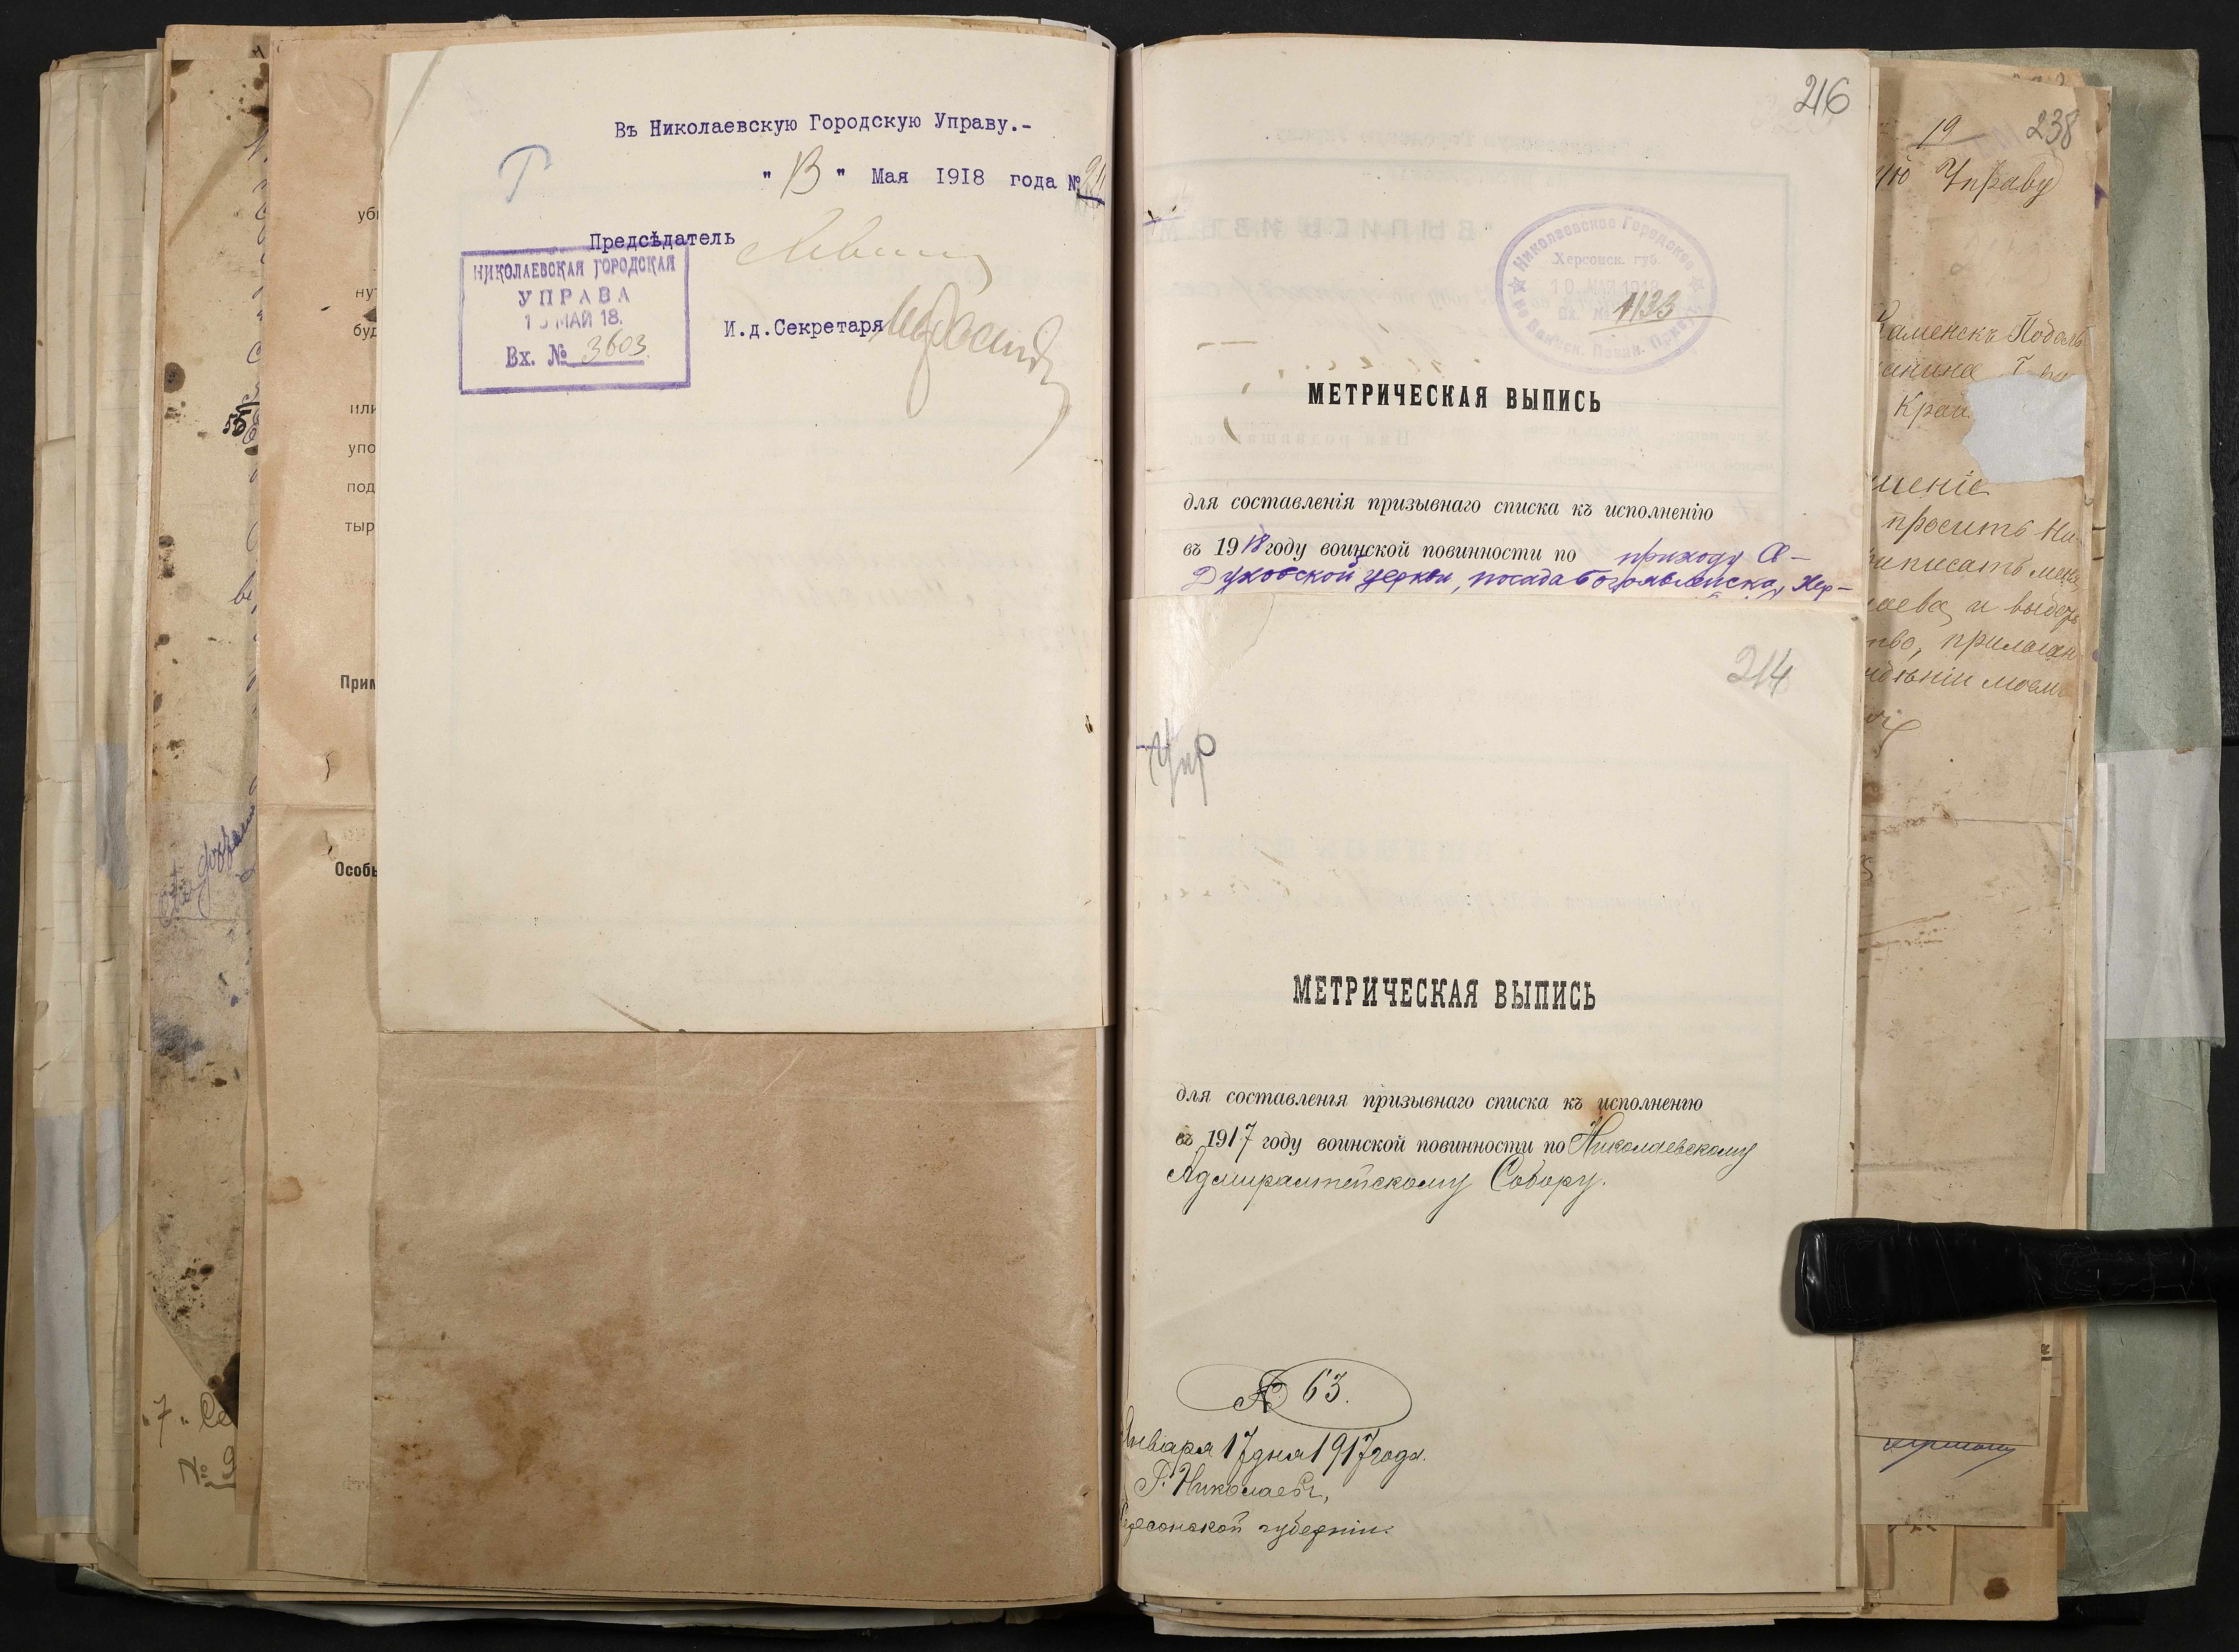 Въ Николаевскую Городскую Управу.-
" 13 " Мая 1918 года №
Предсѣдатель
НИКОЛАЕВСКАЯ ГОРОДСКАЯ
УПРАВА
МАЙ 18.
Вх. № 3603.
И.д.Секретаря
уб
ну
буд
или
упо
под
тыр
Прим
Особ
216
Николаевское Городское
Херсонск. губ.
10 МАЙ 1918
Вх. № 1133
по Воинск. Повин. Присут.
МЕТРИЧЕСКАЯ ВЫПИСЬ
для составленія призывнаго списка къ исполненію
въ 1918 году воинской повинности по приходу С-
Духовской церкви, посада Богоявленска, Хер-
214
МЕТРИЧЕСКАЯ ВЫПИСЬ
для составленія призывнаго списка къ исполненію
въ 1917 году воинской повинности по Николаевскому
Адмиралтейскому Собору.
№ 63.
Января 17 дня 1917 года.
Г. Николаевъ,
Херсонской губерніи.
19
238
Управу
Каменскъ Подоль
Край
шеніе
проситъ Ни-
приписать меня,
лаева и выдать
тво, прилагая